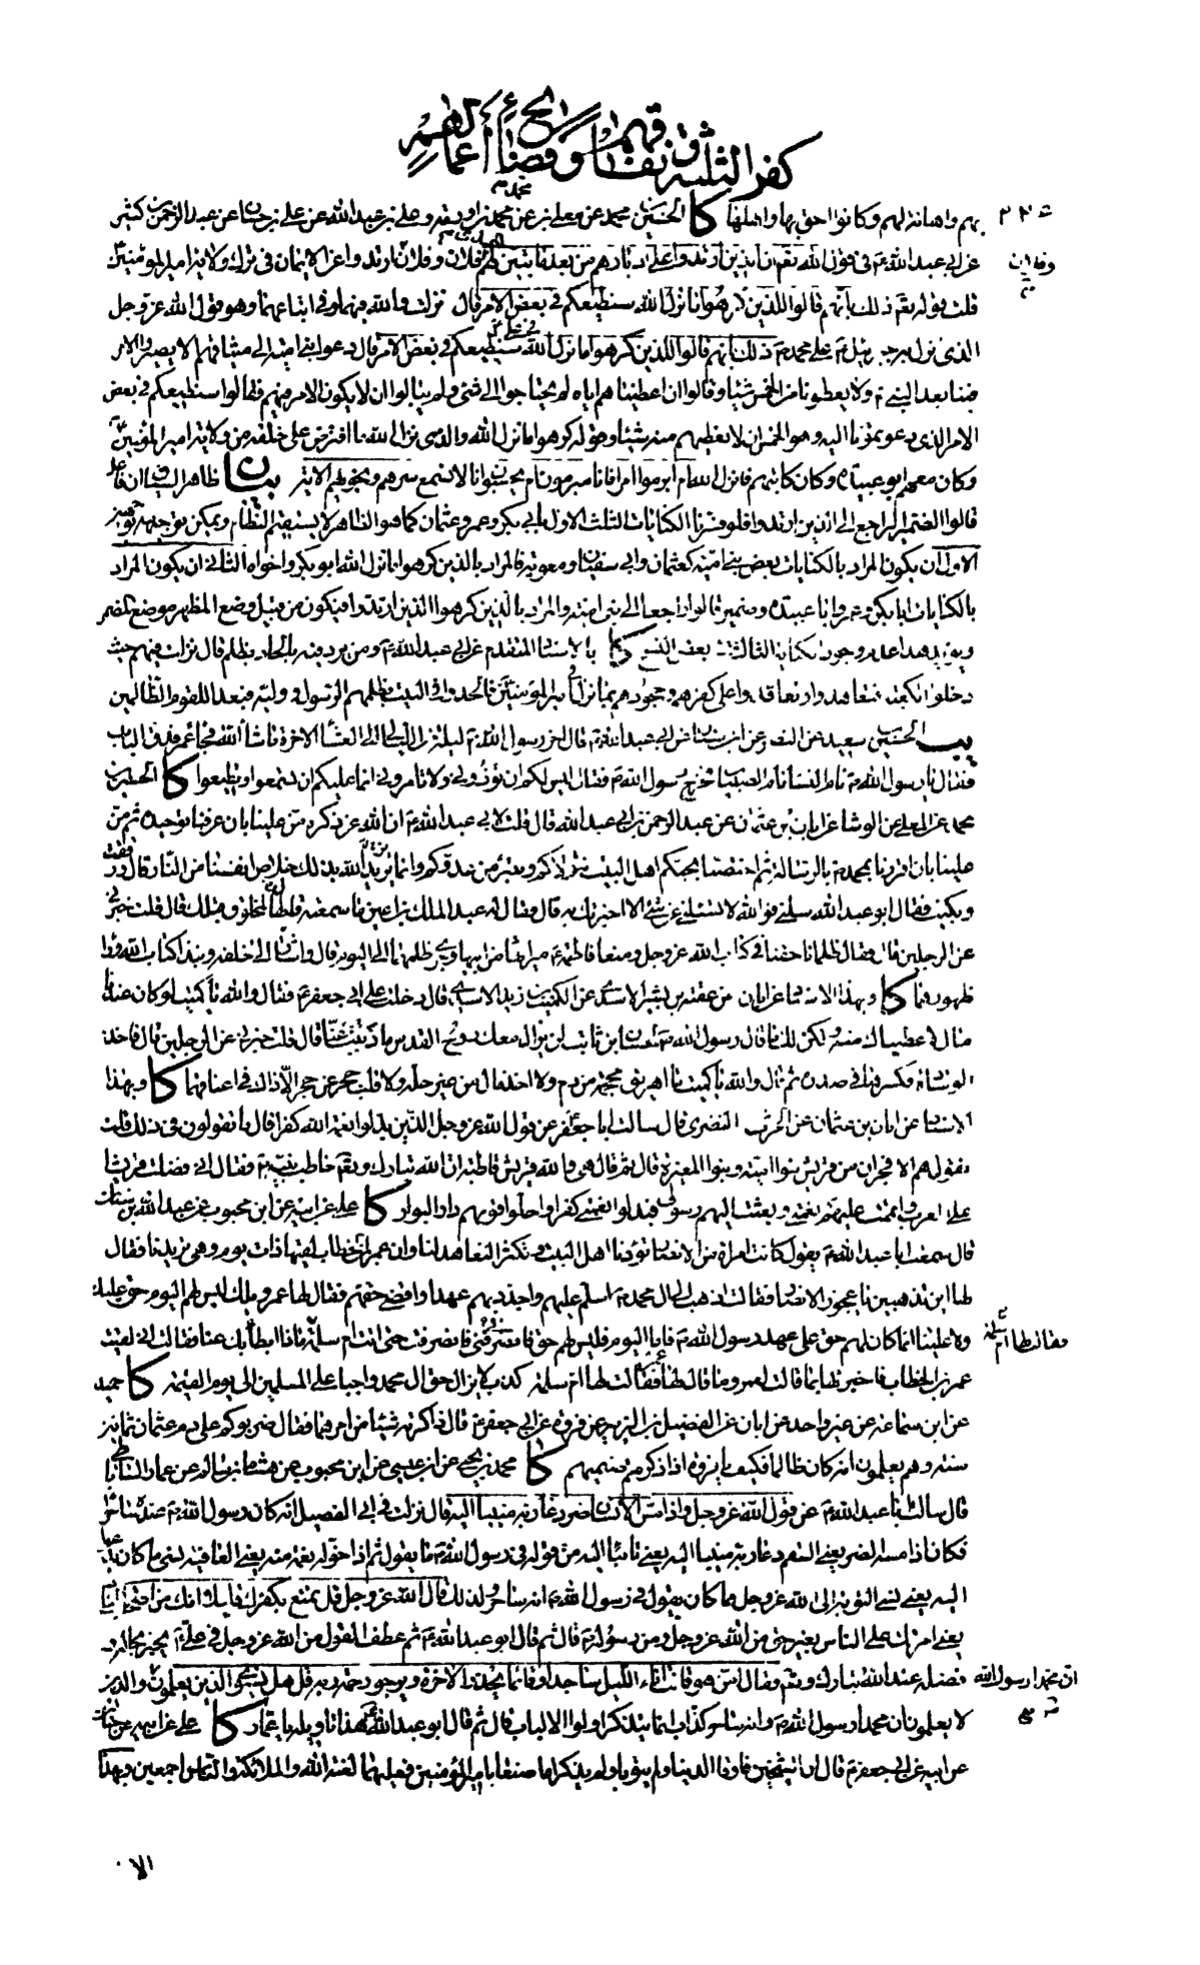 كفر الثلثة ونفاقهم وفضائح أعمالهم
بهم واهانة لهم وكانوا احق بها واهلها كا الحسين بن محمد عن معلى بن محمد عن محمد بن اورمة وعلى بن عبدالله عن على بن حسان عن عبد الرحمن بن كثير
عن ابى عبد الله ع فى قول الله تعالى ان الذين ارتدوا على ادبارهم من بعد ما تبين لهم الهدى فلان وفلان وفلان ارتدوا عن الايمان فى ترك ولاية امير المؤمنين
قلت قوله تعالى ذلك بانهم قالوا للذين كرهوا ما نزل الله سنطيعكم فى بعض الامر قال نزلت والله فيهما وفى اتباعهما وهو قول الله عز وجل
الذى نزل به جبرئيل ع على محمد ص ذلك بانهم قالوا للذين كرهوا ما نزل الله فى على سنطيعكم فى بعض الامر قال دعوا بنى امية الى ميثاقهم الا يصيروا الامر
فينا بعد النبى ص ولا يعطونا من الخمس شيئا وقالوا ان اعطيناهم اياه لم يحتاجوا الى شئ ولم يبالوا ان لا يكون الامر فيهم فقالوا سنطيعكم فى بعض
الامر الذى دعوتمونا اليه وهو الخمس ان لا نعطيهم منه شيئا وقوله كرهوا ما نزل الله والذى نزل الله ما افترض على خلقه من ولاية امير المؤمنين
وكان معهم ابو عبيدة وكان كاتبهم فانزل الله ام ابرموا امرا فانا مبرمون ام يحسبون انا لا نسمع سرهم ونجويهم الاية بيان ظاهر السياق ان فاعل
قالوا الضمير الراجع الى الذين ارتدوا فلو فسرنا الكنايات الثلث الاول بابى بكر وعمر وعثمان كما هو الظاهر لا يستقيم النظام ويمكن توجيهه بوجهين
الاول ان يكون المراد بالكنايات بعض بنى امية كعثمان وابى سفيان ومعوية فالمراد بالذين كرهوا ما نزل الله ابو بكر واخواه الثانى ان يكون المراد
بالكنايات ابا بكر وعمر وابا عبيدة وضمير قالوا راجعا الى بنى امية والمراد بالذين كرهوا الذين ارتدوا فيكون من قبيل وضع المظهر موضع المضمر
ويؤيد هذا عدم وجود الكناية الثالثة فى بعض النسخ كا بالاسناد المتقدم عن ابى عبد الله ع ومن يرد فيه بالحاد بظلم قال نزلت فيهم حيث
دخلوا الكعبة فتعاهدوا وتعاقدوا على كفرهم وجحودهم بما نزل فى امير المؤمنين فالحدوا فى البيت بظلمهم الرسول ووليه فبعدا للقوم الظالمين
يب الحسين بن سعيد عن النضر عن ابن سنان عن ابى عبد الله ع قال اخر رسول الله ص ليلة من الليالى العشاء الاخرة ما شاء الله فجاء عمر فدق الباب
فقال يا رسول الله ص نام النساء نام الصبيان فخرج رسول الله ص فقال ليس لكم ان تؤذونى ولا تامرونى انما عليكم ان تسمعوا وتطيعوا كا الحسين بن
محمد عن المعلى عن الوشا عن ابان بن عثمان عن عبد الرحمن بن ابى عبد الله قال قلت لابى عبد الله ع ان الله عز ذكره من علينا بان عرفنا توحيده ثم من
علينا بان اقررنا بمحمد ص بالرسالة ثم اختصنا بحبكم اهل البيت نتولاكم ونتبرء من عدوكم وانما يريد الله بذلك خلاص انفسنا من النار قال ورققت
وبكيت فقال ابو عبد الله سلنى فوالله لا تسئلنى عن شئ الا اخبرتك به قال فقال له عبد الملك بن اعين ما سمعته قالها لمخلوق قبلك قال قلت خبرنى
عن الرجلين قال فقال ظلمانا حقنا فى كتاب الله عز وجل ومنعا فاطمة ع ميراثها من ابيها وجرى ظلمهما الى اليوم قال واشار الى خلفه ونبذا كتاب الله وراء
ظهورهما كا وبهذا الاسناد عن ابان عن عقبة بن بشير الاسدى عن الكميت بن زيد الاسدى قال دخلت على ابى جعفر ع فقال والله يا كميت لو كان عندنا
مال لاعطيناك منه ولكن لك ما قال رسول الله ص لحسان بن ثابت لن يزال معك روح القدس ما ذببت عنا قال قلت خبرنى عن الرجلين قال فاخذ
الوسادة فكسرها فى صدره ثم قال والله يا كميت ما اهريق محجمة من دم ولا اخذ مال من غير حله ولا قلب حجر عن حجر الا ذاك فى اعناقهما كا وبهذا
الاسناد عن ابان بن عثمان عن الحرث النضرى قال سالت ابا جعفر ع عن قول الله عز وجل الذين بدلوا نعمة الله كفرا قال ما تقولون فى ذلك قلت
نقول هم الافجران من قريش بنو امية وبنو المغيرة قال ثم قال هى والله قريش قاطبة ان الله تبارك وتعالى خاطب نبيه ص فقال انى فضلت قريشا
على العرب واتممت عليهم نعمتى وبعثت اليهم رسولى فبدلوا نعمتى كفرا واحلوا قومهم دار البوار كا على عن ابيه عن ابن محبوب عن عبد الله بن سنان
قال سمعت ابا عبد الله ع يقول كانت امراة من الانصار تودنا اهل البيت وتكثر التعاهد لنا وان عمر بن الخطاب لقيها ذات يوم وهى تريدنا فقال
لها اين تذهبين يا عجوز الانصار فقالت اذهب الى ال محمد ص اسلم عليهم واجدد بهم عهدا واقضى حقهم فقال لها عمر ويلك ليس لهم اليوم حق عليك
ولا علينا انما كان لهم حق على عهد رسول الله ص فاما اليوم فليس لهم حق فانصرفى فانصرفت حتى اتت ام سلمة فقالت لها ام سلمة ما ذا ابطأ بك عنا فقالت انى لقيت
عمر بن الخطاب فاخبرتها بما قالت لعمر وما قال لها عمر فقالت لها ام سلمة كذب لا يزال حق ال محمد واجبا على المسلمين الى يوم القيمة كا حميد
عن ابن سماعة عن غير واحد عن ابان عن الفضيل بن الزبير عن فروة عن ابى جعفر ع قال ذاكرته شيئا من امرهما فقال ضربوكم على دم عثمان ثمانين
سنة وهم يعلمون انه كان ظالما فكيف يا فروة اذا ذكرتم صنميهم كا محمد بن يحيى عن ابن عيسى عن ابن محبوب عن هشام بن سالم عن عمار الساباطى
قال سالت ابا عبد الله ع عن قول الله عز وجل واذا مس الانسان ضر دعا ربه منيبا اليه قال نزلت فى ابى الفصيل انه كان رسول الله ص عنده ساحرا
فكان اذا مسه الضر يعنى السقم دعا ربه منيبا اليه يعنى تائبا اليه من قوله فى رسول الله ص ما يقول ثم اذا خوله نعمة منه يعنى العافية نسى ما كان يدعو
اليه يعنى نسى التوبة الى الله عز وجل مما كان يقول فى رسول الله ص انه ساحر ولذلك قال الله عز وجل قل تمتع بكفرك قليلا انك من اصحاب النار
يعنى امرتك على الناس بغير حق من الله عز وجل ومن رسوله ص قال ثم قال ابو عبد الله ع ثم عطف القول من الله عز وجل فى على ع يخبر بحاله و
فضله عند الله تبارك وتعالى فقال امن هو قانت اناء الليل ساجدا وقائما يحذر الاخرة ويرجو رحمة ربه قل هل يستوى الذين يعلمون ان محمدا رسول الله والذين
لا يعلمون ان محمدا رسول الله ص وانه ساحر كذاب انما يتذكر اولوا الالباب قال ثم قال ابو عبد الله ع هذا تاويله يا عمار كا على عن ابيه عن حنان
عن ابيه عن ابى جعفر ع قال ان الشيخين فارقا الدنيا ولم يتوبا ولم يتذكرا ما صنعا بامير المؤمنين فعليهما لعنة الله والملائكة والناس اجمعين وبهذا
الا